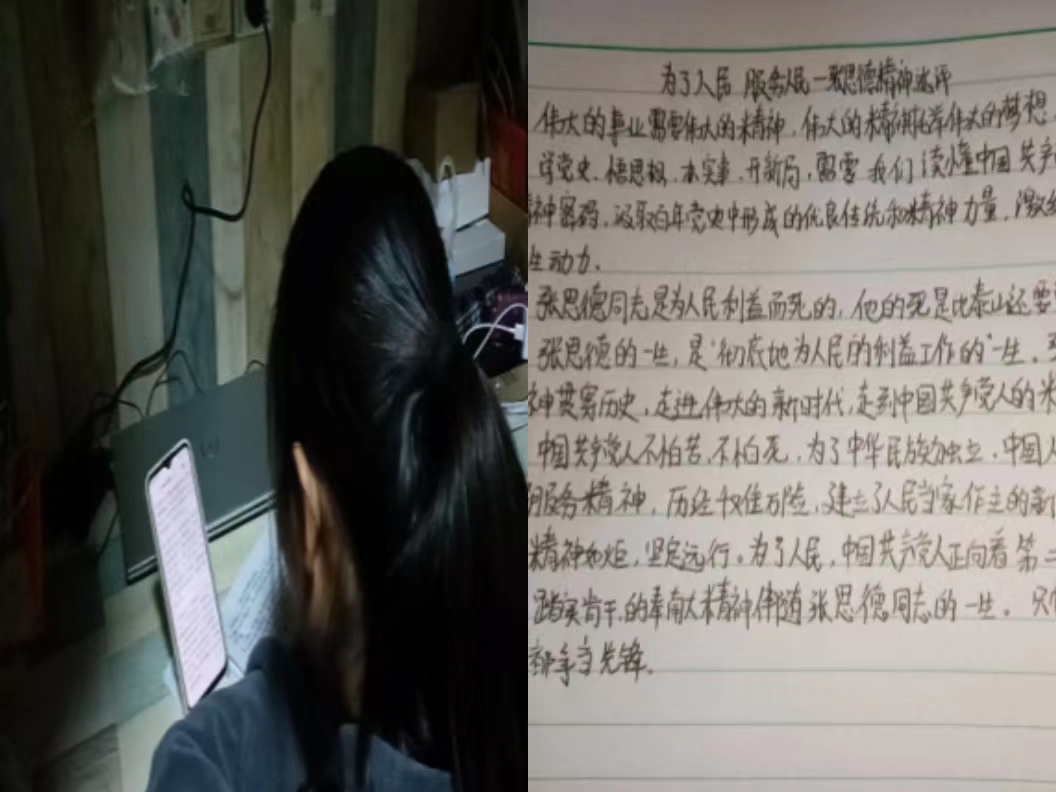 为了人民 服务人民一张思德精神述评
伟大的事业需要伟大的精神，伟大的精神托举伟大的梦想
学党史、悟思想、办实事、开新局，需要我们读懂中国共产
神密码，汲取百年党史中形成的优良传统和精神力量，激发
生动力。
张思德同志是为人民利益而死的，他的死是比泰山还要
张思德的一生，是“彻底地为人民的利益工作的”一生。
神贯穿历史，走进伟大的新时代，走到中国共产党人的
中国共产党人不怕苦、不怕死，为了中华民族独立、中国人
服务精神，历经千难万险，建立了人民当家作主的新
精神如炬，坚定远行。为了人民，中国共产党人正向着第二
踏实肯干、的奉献大精神伴随张思德同志的一生。只
都争当先锋。